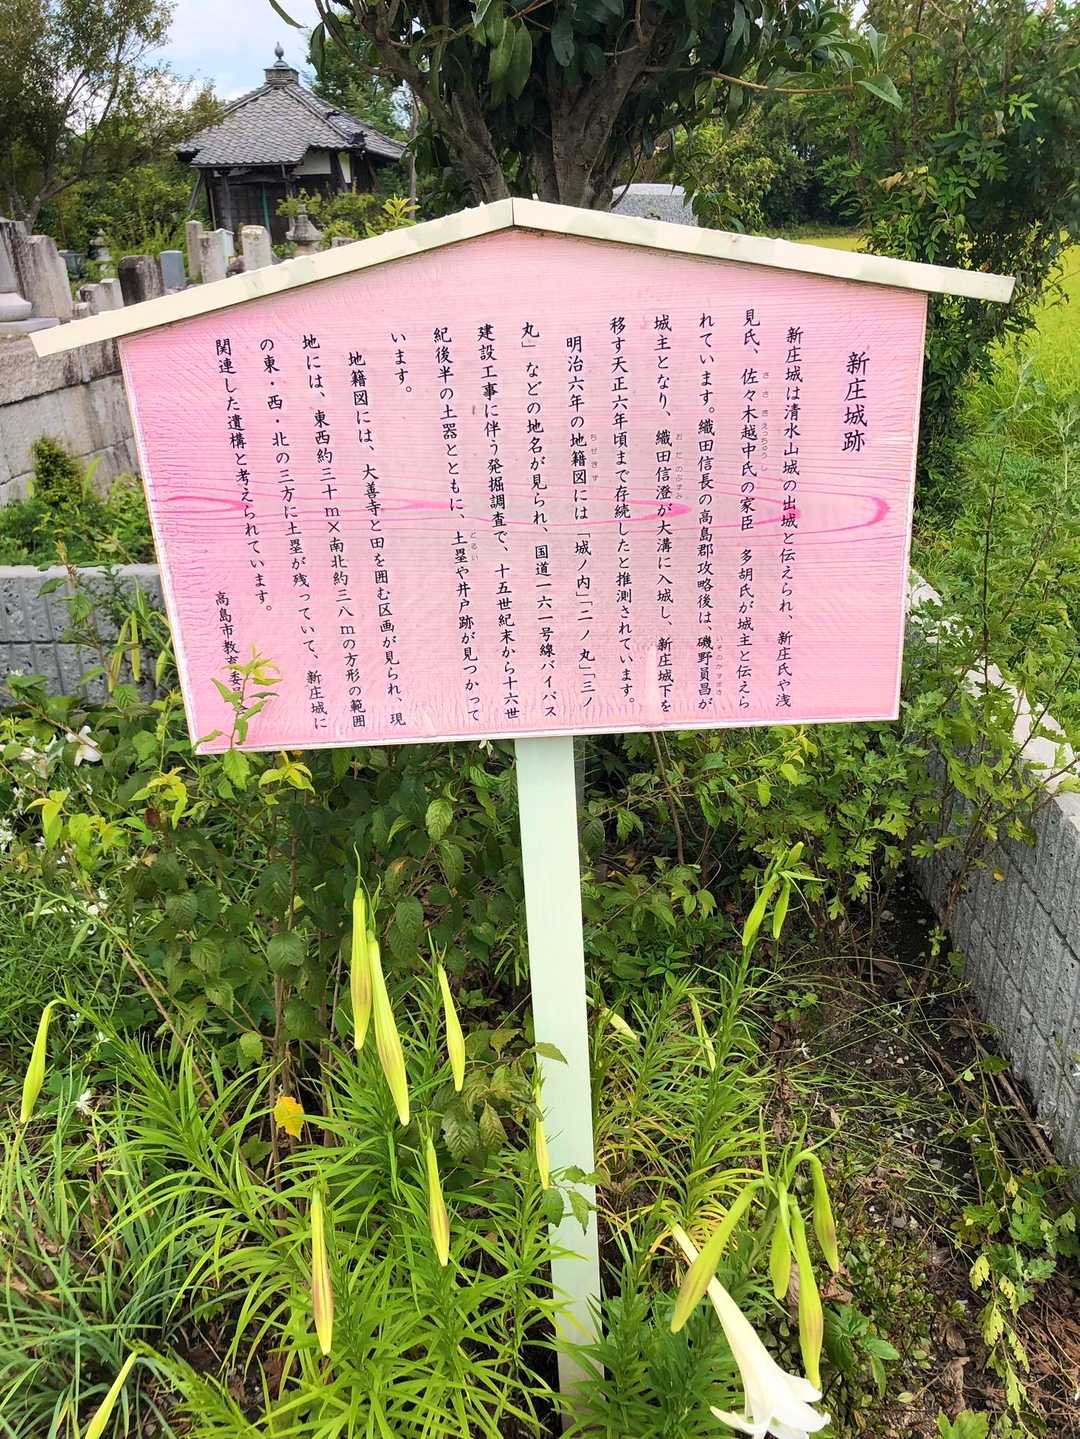 新庄城跡
新庄城は清水山城の出城と伝えられ、新庄氏や浅
見氏、佐々木越中氏の家臣　多胡氏が城主と伝えら
さ さ き えっちゅうし
れています。織田信長の高島郡攻略後は、磯野員昌が
いそのかずまさ
城主となり、織田信澄が大溝に入城し、新庄城下を
おだのぶずみ
移す天正六年頃まで存続したと推測されています。
明治六年の地籍図には「城ノ内」「二ノ丸」「三ノ
ちせきず
丸」などの地名が見られ、国道一六一号線バイパス
建設工事に伴う発掘調査で、十五世紀末から十六世
紀後半の土器とともに、土塁や井戸跡が見つかって
どるい
います。
地籍図には、大善寺と田を囲む区画が見られ、現
地には、東西約三十m×南北約三八mの方形の範囲
の東・西・北の三方に土塁が残っていて、新庄城に
関連した遺構と考えられています。
高島市教育委